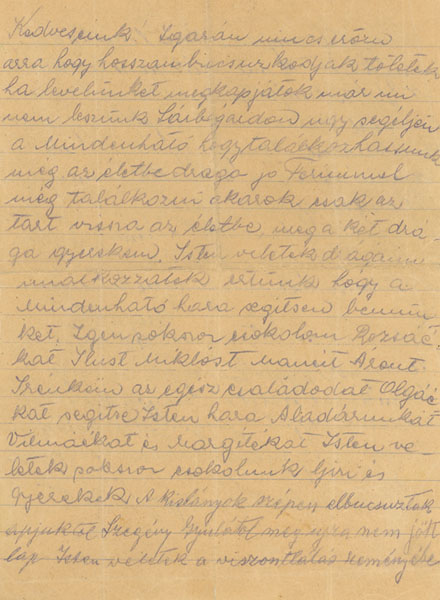 Kedveseink! Igazán nincs erőm
arra hogy hosszan bucsuzkodjak töletek
ha levelünket megkapjátok mar mi
nem leszünk Sárbogárdon ugy segéljen
a Mindenható hogy találkozhassunk
még az életbe draga jo Ferimmel
még találkozni akarok csak az
tart vissza az életbe meg a két drá-
ga gyerekem. Isten veletek drágáim
imálkozzatok értünk hogy a
Mindenható haza segitsen bennün
ket. Igen sokszor csókolom Rozsác
kat Ilust Miklóst Mancit Aront.
Irénkém az egész családodat Olgác
kat segitse Isten haza Aladárunkat
Vilmáékat és Margitékat Isten ve-
letek sokszor csokolunk Ijvi és
gyerekek. A kislányok szépen elbucsuztok
apjuktol Szegény Gyulától meg ujra nem jött
lap Isten veletek a viszontlátás reményébe